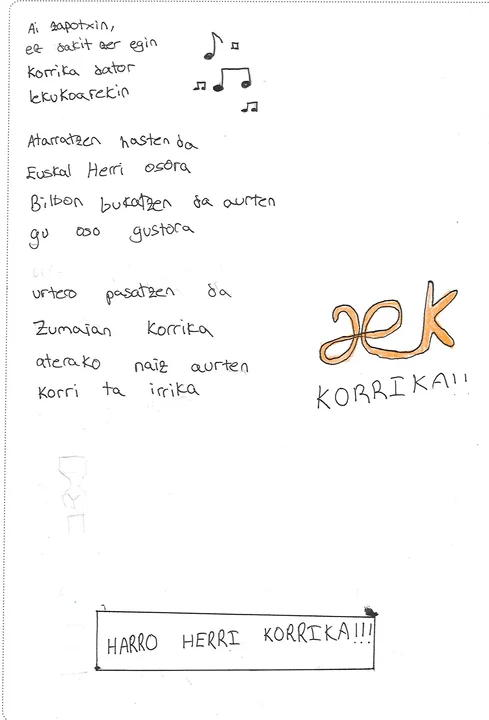 Ai zapotxin,
ez dakit zer egin
Korrika dator
lekukoarekin
Atarratzen hasten da
Euskal Herri osora
Bilbon bukatzen da aurten
gu oso gustora
urtero pasatzen da
Zumaian Korrika
aterako naiz aurten
Korri ta irrika
aek
KORRIKA!!
HARRO HERRI KORRIKA!!!